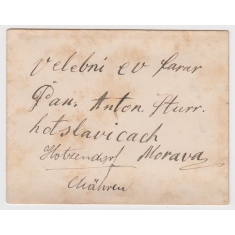 Velebni ev farar
Pan. Anton Sturr.
hotslavicach
Hotzendorf Morava
Mähren